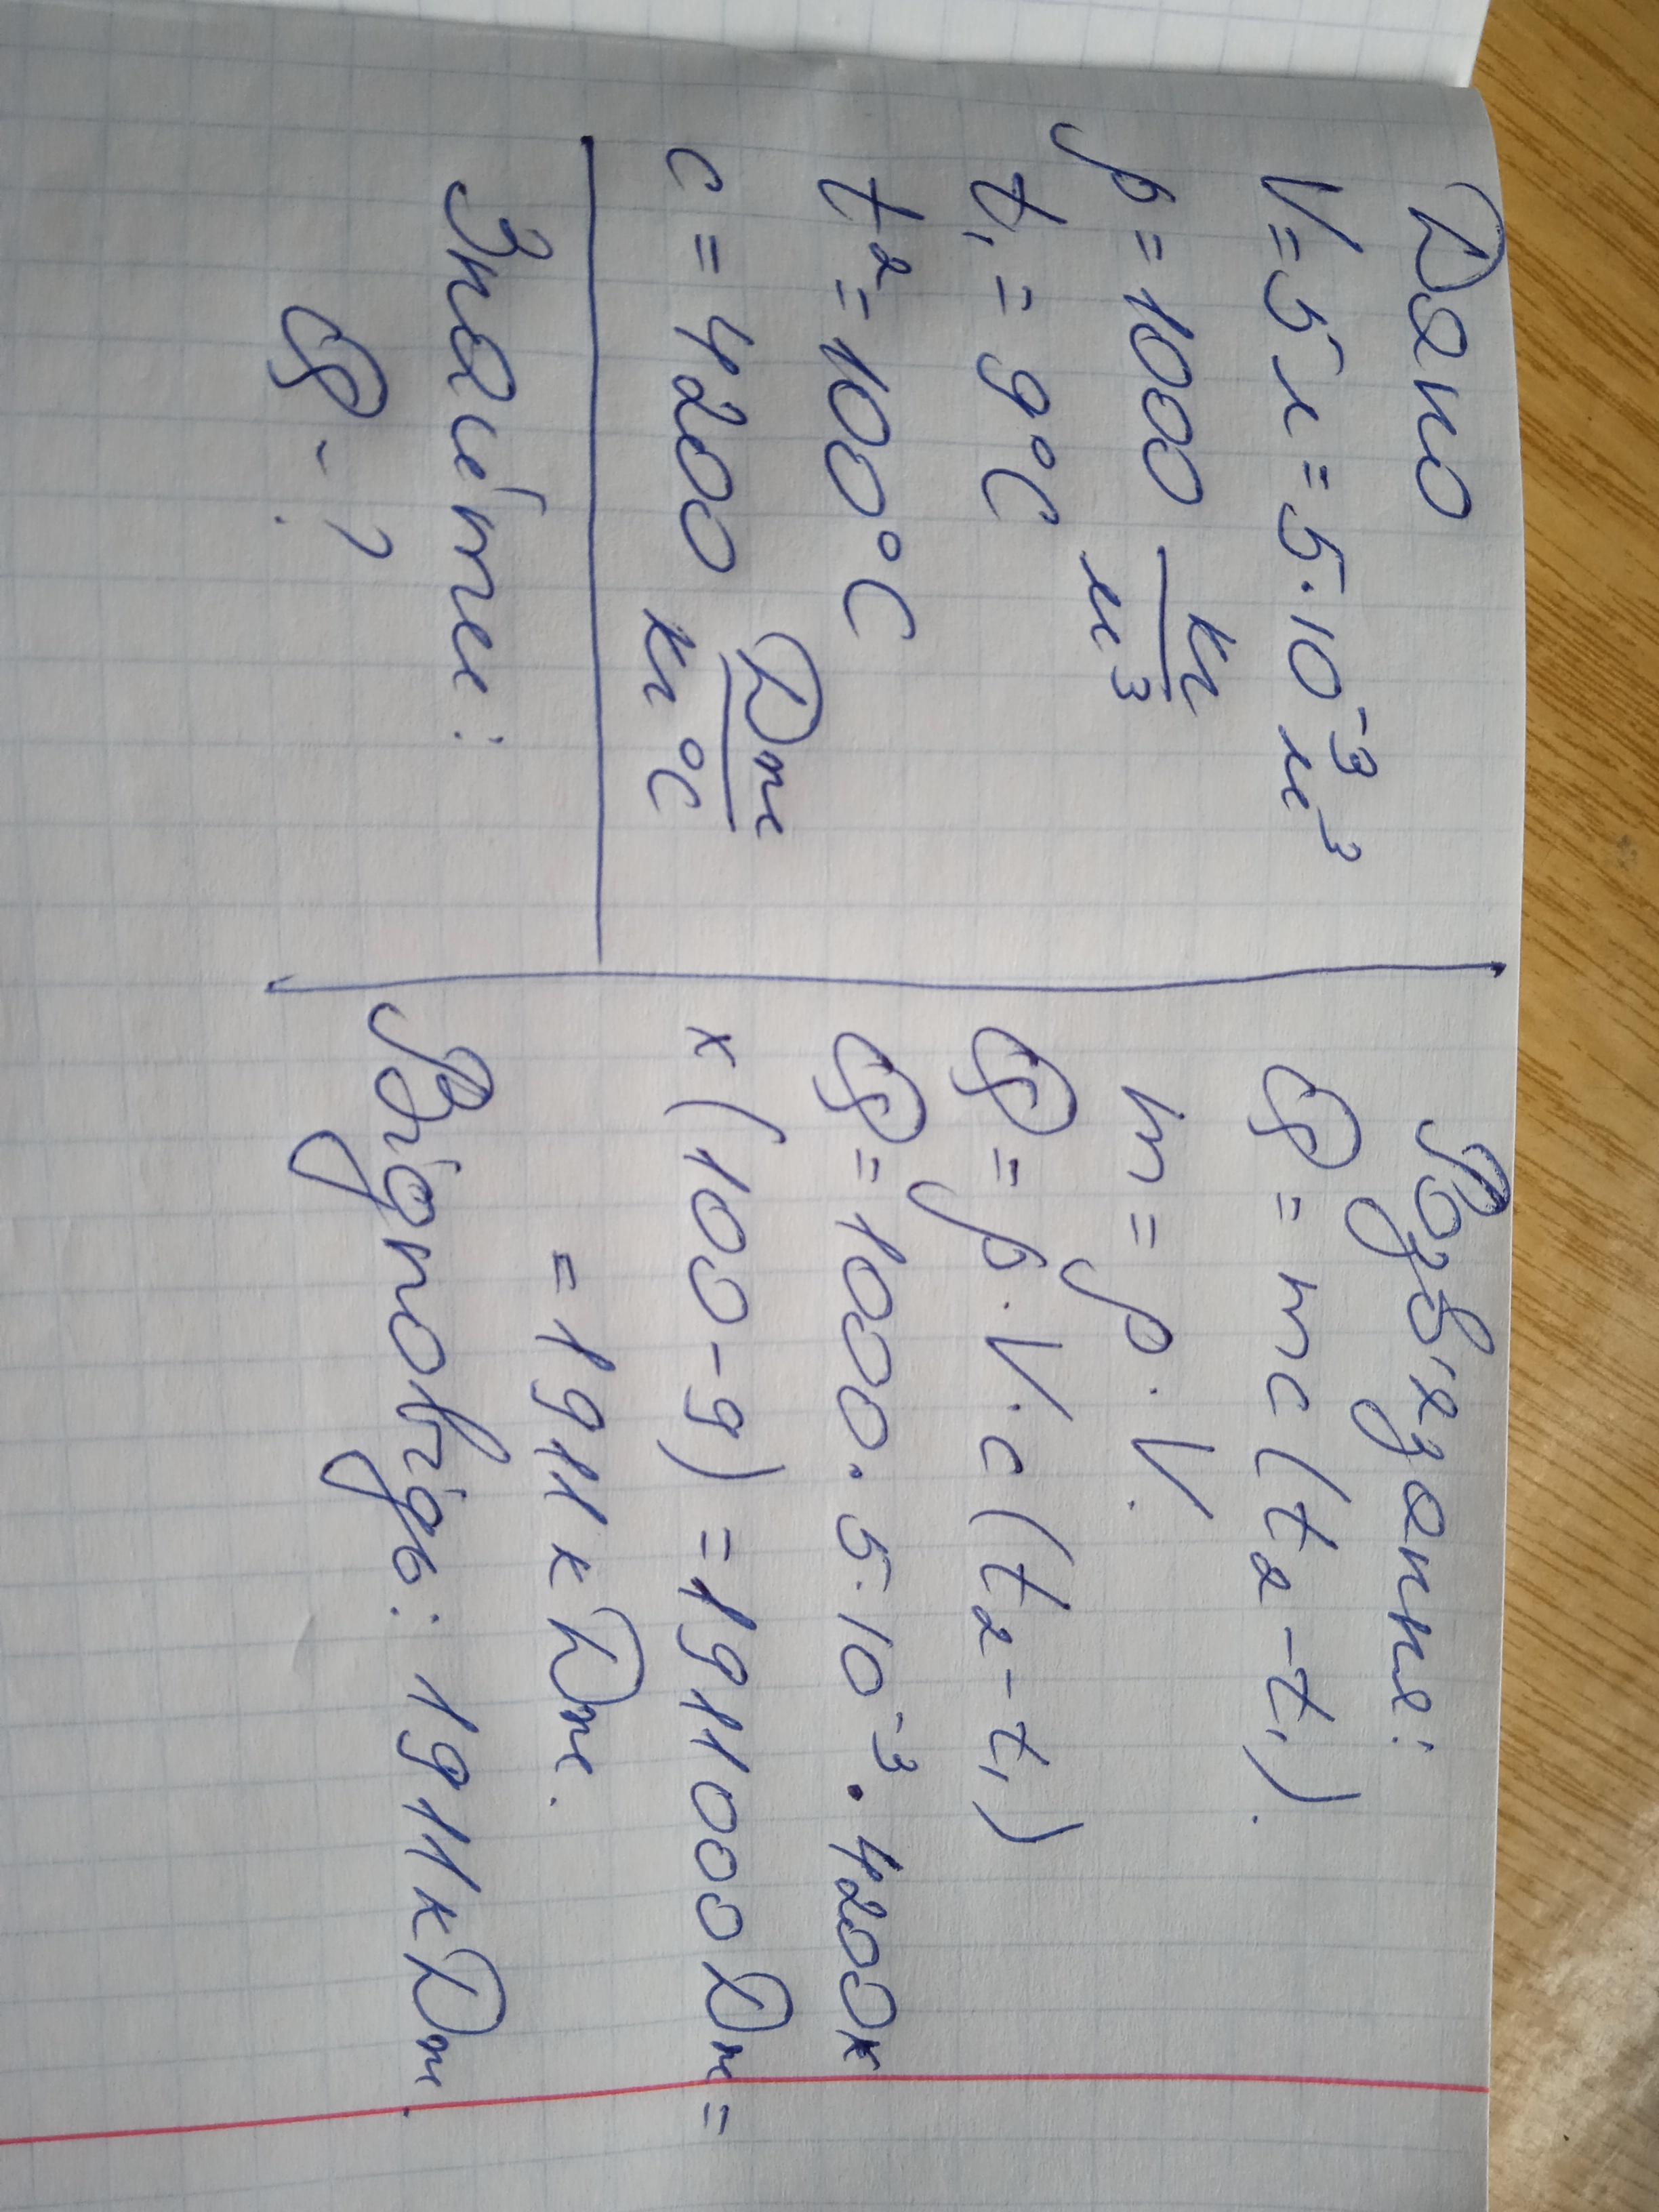 Дано
V=5л=5·10⁻³м³
ρ=1000 кг/м³
t₁=9°C
t₂=100°C
c=4200 Дж/кг°C
Знайти:
Q-?
Розв'язання:
Q=mc(t₂-t₁).
m=ρ·V.
Q=ρ·V·c(t₂-t₁)
Q=1000·5·10⁻³·4200х
х(100-9)=1911000Дж=
=1911кДж.
Відповідь: 1911кДж.